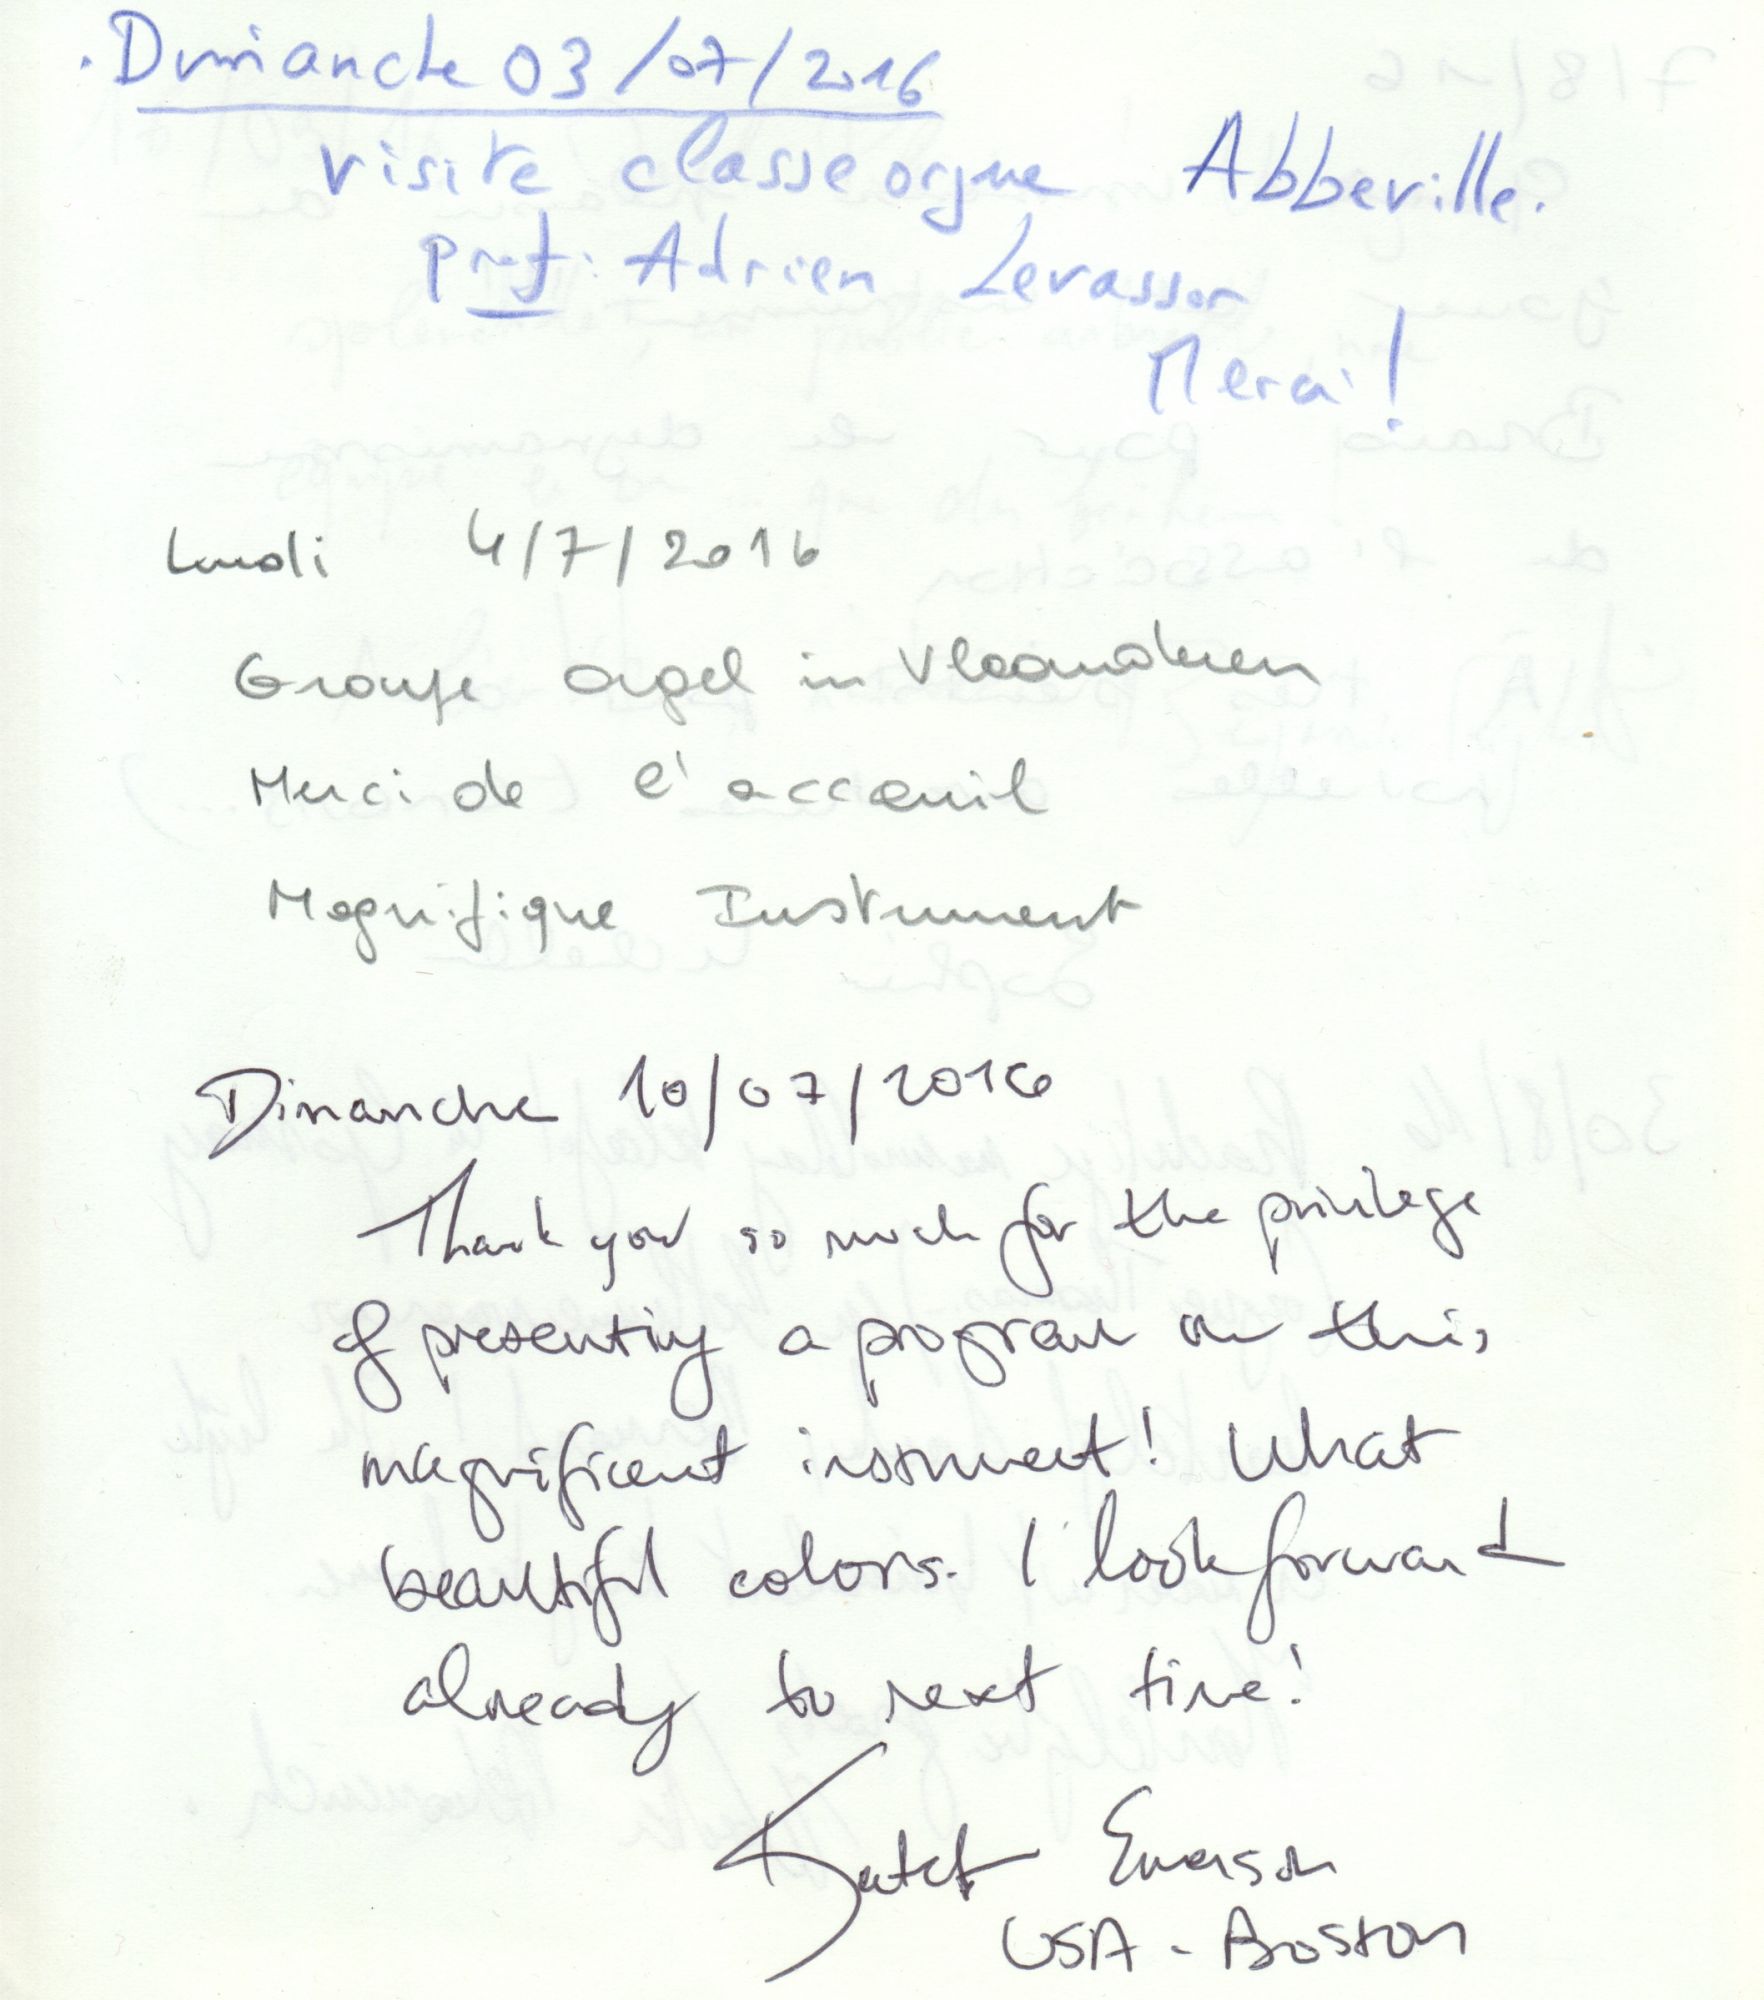 . Dimanche 03/07/2016
visite classe orgue Abbeville.
prof: Adrien Levassor
Merci !
Lundi 4/7/2016
Groupe orgel in Vlaanderen
Merci de l'accoeuil
Magnifique Instrument
Dimanche 10/07/2016
Thank you so much for the privilege
of presenting a program on this
magnificent instrument! What
beautiful colors. I look forward
already to next time!
Emerson
USA - Boston